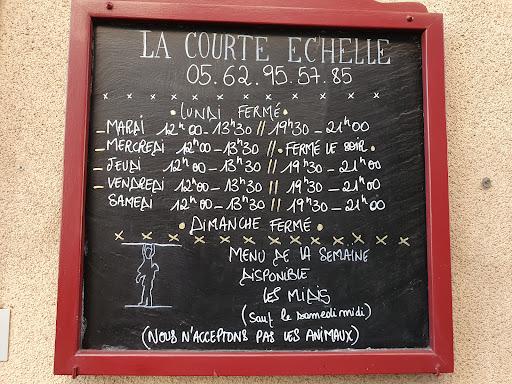 LA COURTE ECHELLE
05.62.95.57.85
• LUNDI FERMÉ •
– MARDI 12h00 – 13h30 // 19h30 – 21h00
– MERCREDI 12h00 – 13h30 // • FERMÉ LE SOIR •
– JEUDI 12h00 – 13h30 // 19h30 – 21h00
– VENDREDI 12h00 – 13h30 // 19h30 – 21h00
SAMEDI 12h00 – 13h30 // 19h30 – 21h00
• DIMANCHE FERMÉ •
MENU DE LA SEMAINE
DISPONIBLE
LES MIDIS
(sauf le samedi midi)
(NOUS N'ACCEPTONS PAS LES ANIMAUX)